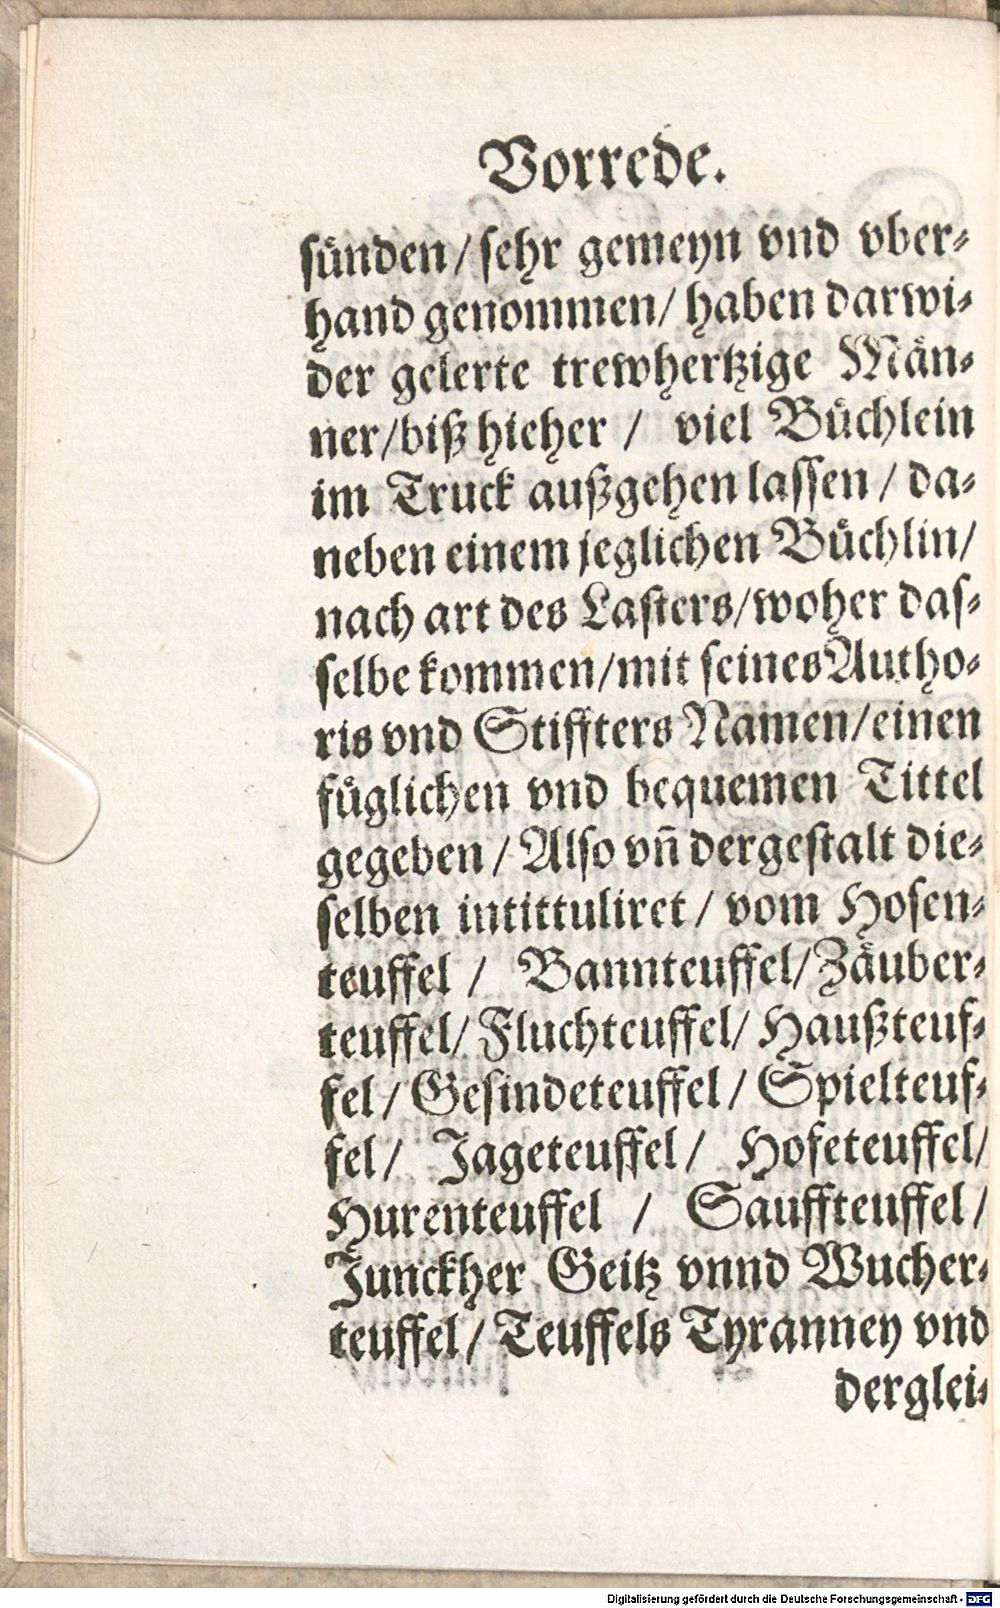 Vorrede.
suͤnden / sehr gemeyn vnd vber⸗
hand genommen / haben darwi⸗
der gelerte trewhertzige Maͤn⸗
ner / biß hieher / viel Buͤchlein
im Truck außgehen lassen / da⸗
neben einem jeglichen Buͤchlin /
nach art des Lasters / woher das⸗
selbe kommen / mit seines Autho⸗
ris vnd Stiffters Namen / einen
fuͤglichen vnd bequemen Tittel
gegeben / Also vñ dergestalt die⸗
selben intittuliret / vom Hosen⸗
teuffel / Bannteuffel / Zaͤuber⸗
teuffel / Fluchteuffel / Haußteuf⸗
fel / Gesindeteuffel / Spielteuf⸗
fel / Jageteuffel / Hofeteuffel /
Hurenteuffel / Sauffteuffel /
Junckher Geitz vnnd Wucher⸗
teuffel / Teuffels Tyranney vnd
derglei⸗
Digitalisierung gefördert durch die Deutsche Forschungsgemeinschaft - DFG